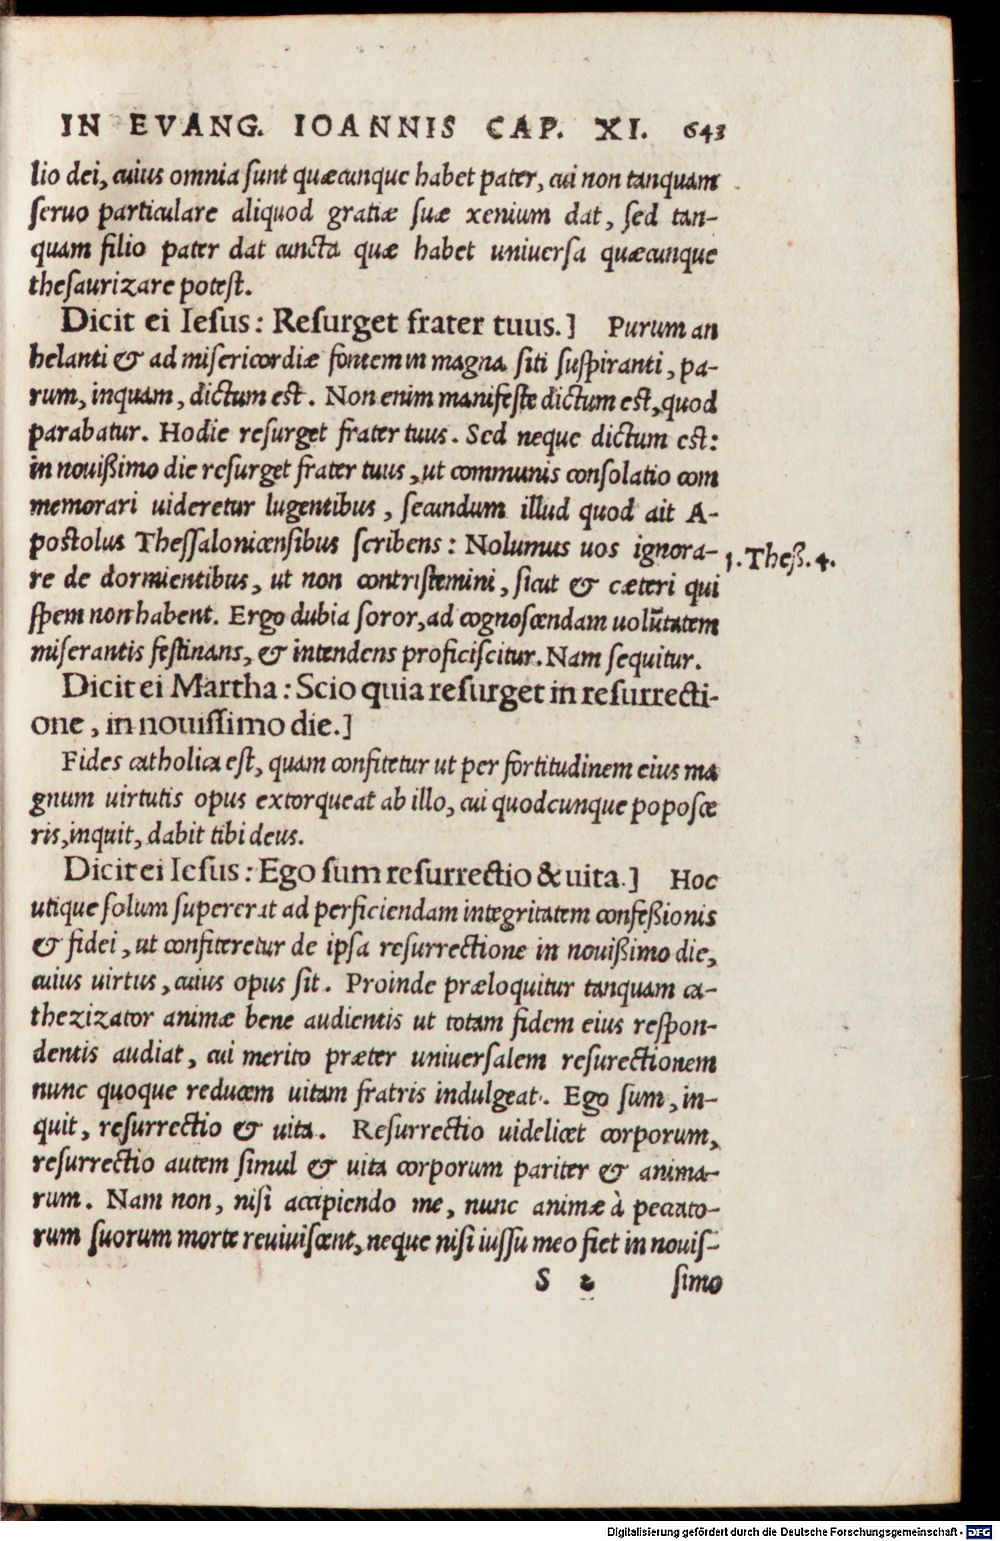 IN EVANG. IOANNIS CAP. XI. 643
lio dei, cuius omnia ſunt quæcunque habet pater, cui non tanquam
ſeruo particulare aliquod gratiæ ſuæ xenium dat, ſed tan-
quam filio pater dat cuncta quæ habet uniuerſa quæcunque
theſaurizare poteſt.
Dicit ei Ieſus: Reſurget frater tuus.] Purum an
helanti & ad miſericordiæ fontem in magna ſiti ſuſpiranti, pa-
rum, inquam, dictum est. Non enim manifeſte dictum eſt, quod
parabatur. Hodie reſurget frater tuus. Sed neque dictum eſt:
in nouißimo die reſurget frater tuus, ut communis conſolatio com
memorari uideretur lugentibus, ſecundum illud quod ait A-
poſtolus Theſſalonicenſibus ſcribens: Nolumus uos ignora-
1. Theß. 4.
re de dormientibus, ut non contriſtemini, ſicut & cæteri qui
ſpem non habent. Ergo dubia ſoror, ad cognoſcendam uolūtatem
miſerantis feſtinans, & intendens proficiſcitur. Nam ſequitur.
Dicit ei Martha: Scio quia reſurget in reſurrecti-
one, in nouiſſimo die.]
Fides catholica eſt, quam confitetur ut per fortitudinem eius ma
gnum uirtutis opus extorqueat ab illo, cui quodcunque popoſce
ris, inquit, dabit tibi deus.
Dicit ei Ieſus: Ego ſum reſurrectio & uita.] Hoc
utique ſolum ſupererat ad perficiendam integritatem confeßionis
& fidei, ut confiteretur de ipſa reſurrectione in nouißimo die,
cuius uirtus, cuius opus ſit. Proinde præloquitur tanquam ca-
thezizator animæ bene audientis ut totam fidem eius reſpon-
dentis audiat, cui merito præter uniuerſalem reſurectionem
nunc quoque reducem uitam fratris indulgeat. Ego ſum, in-
quit, reſurrectio & uita. Reſurrectio uidelicet corporum,
reſurrectio autem ſimul & uita corporum pariter & anima-
rum. Nam non, niſi accipiendo me, nunc animæ à peccato-
rum ſuorum morte reuiuiſcent, neque niſi iuſſu meo fiet in nouiſ-
S 2 ſimo
Digitalisierung gefördert durch die Deutsche Forschungsgemeinschaft - DFG